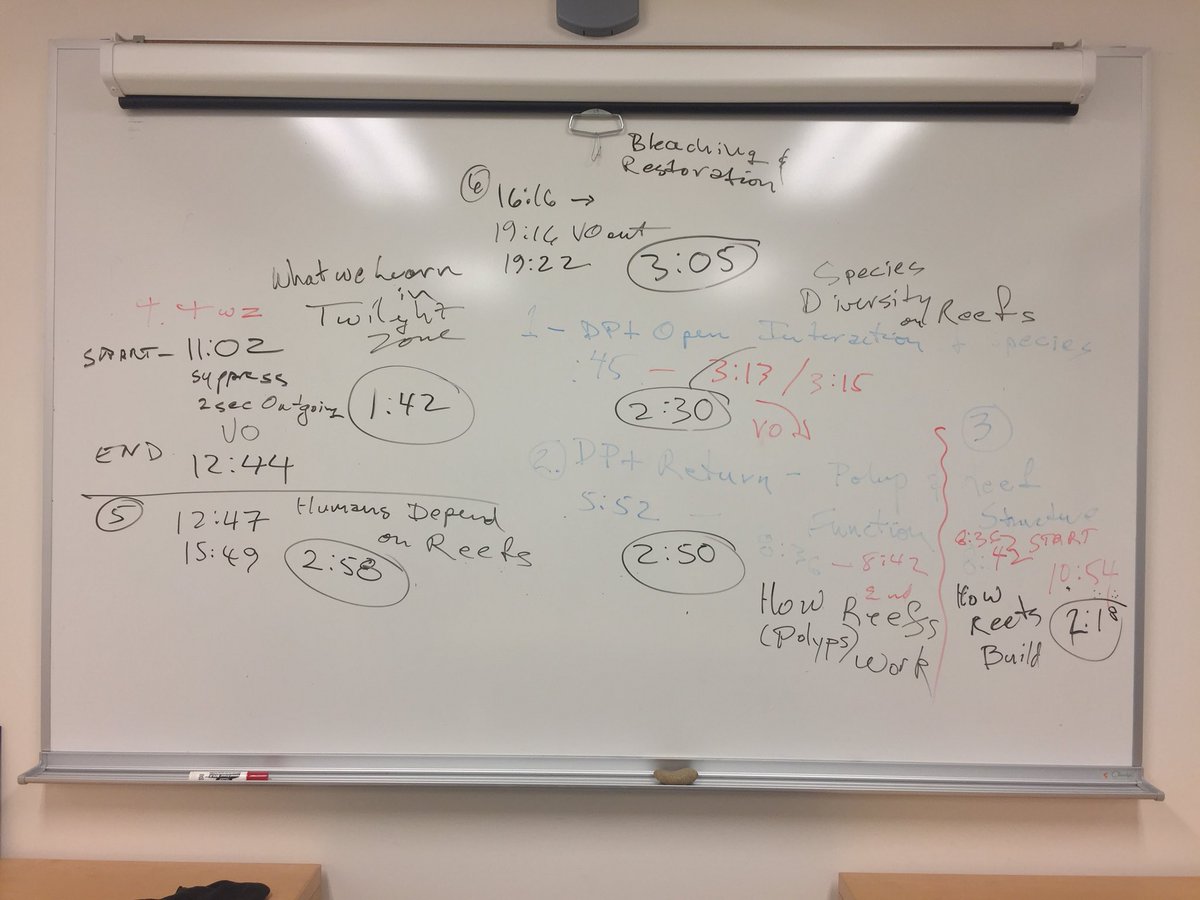 Bleaching &
Restoration
6 16:16 →
19:16 VO out
19:22
3:05
What we Learn
in
Twilight
Zone
START - 11:02
suppress
2sec Outgoing
VO
END 12:44
1:42
5 12:47
15:49
Humans Depend
on Reefs
2:58
Species
Diversity
on Reefs
1 - DPt Open Interaction + Species
:45 - 3:13 / 3:15
2:30
VO
2. DPt Return - Polyp &
5:52 -
Function
- 8:42
2nd
2:50
How Reefs
(Polyps) Work
3
Reef
Structure
START
:42
10:54
How
Reefs
Build
2:18